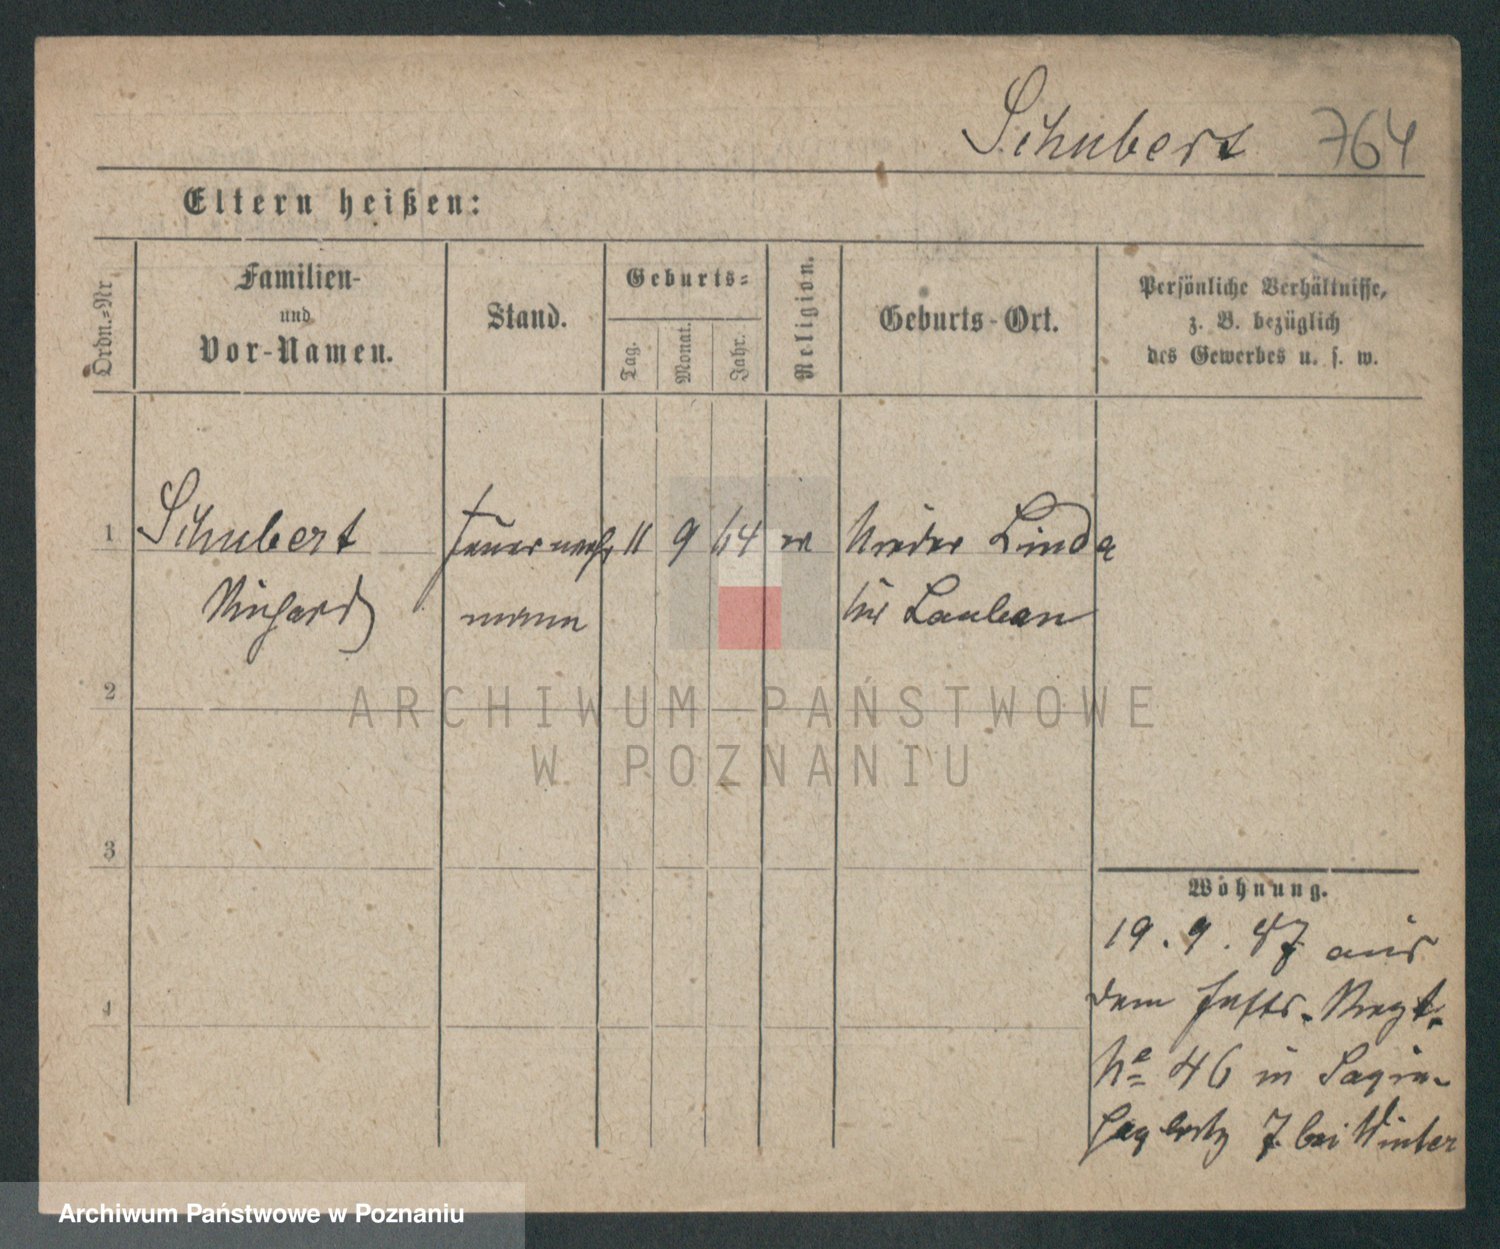 Schubert 764
Eltern heißen:
Ordn.-Nr
Familien-
und
Vor-Namen.
Stand.
Geburts-
Tag.
Monat.
Jahr.
Religion.
Geburts-Ort.
Persönliche Verhältnisse,
z. B. bezüglich
des Gewerbes u. s. w.
1 Schubert Feuerwehr 11 9 64 Nieder Linda
Richard mann Lauban
2
ARCHIWUM PAŃSTWOWE
W POZNANIU
3
Wohnung.
19. 9. 87 aus
dem Inftr. Regt.
4
No 46 in
7. bei Winter
Archiwum Państwowe w Poznaniu